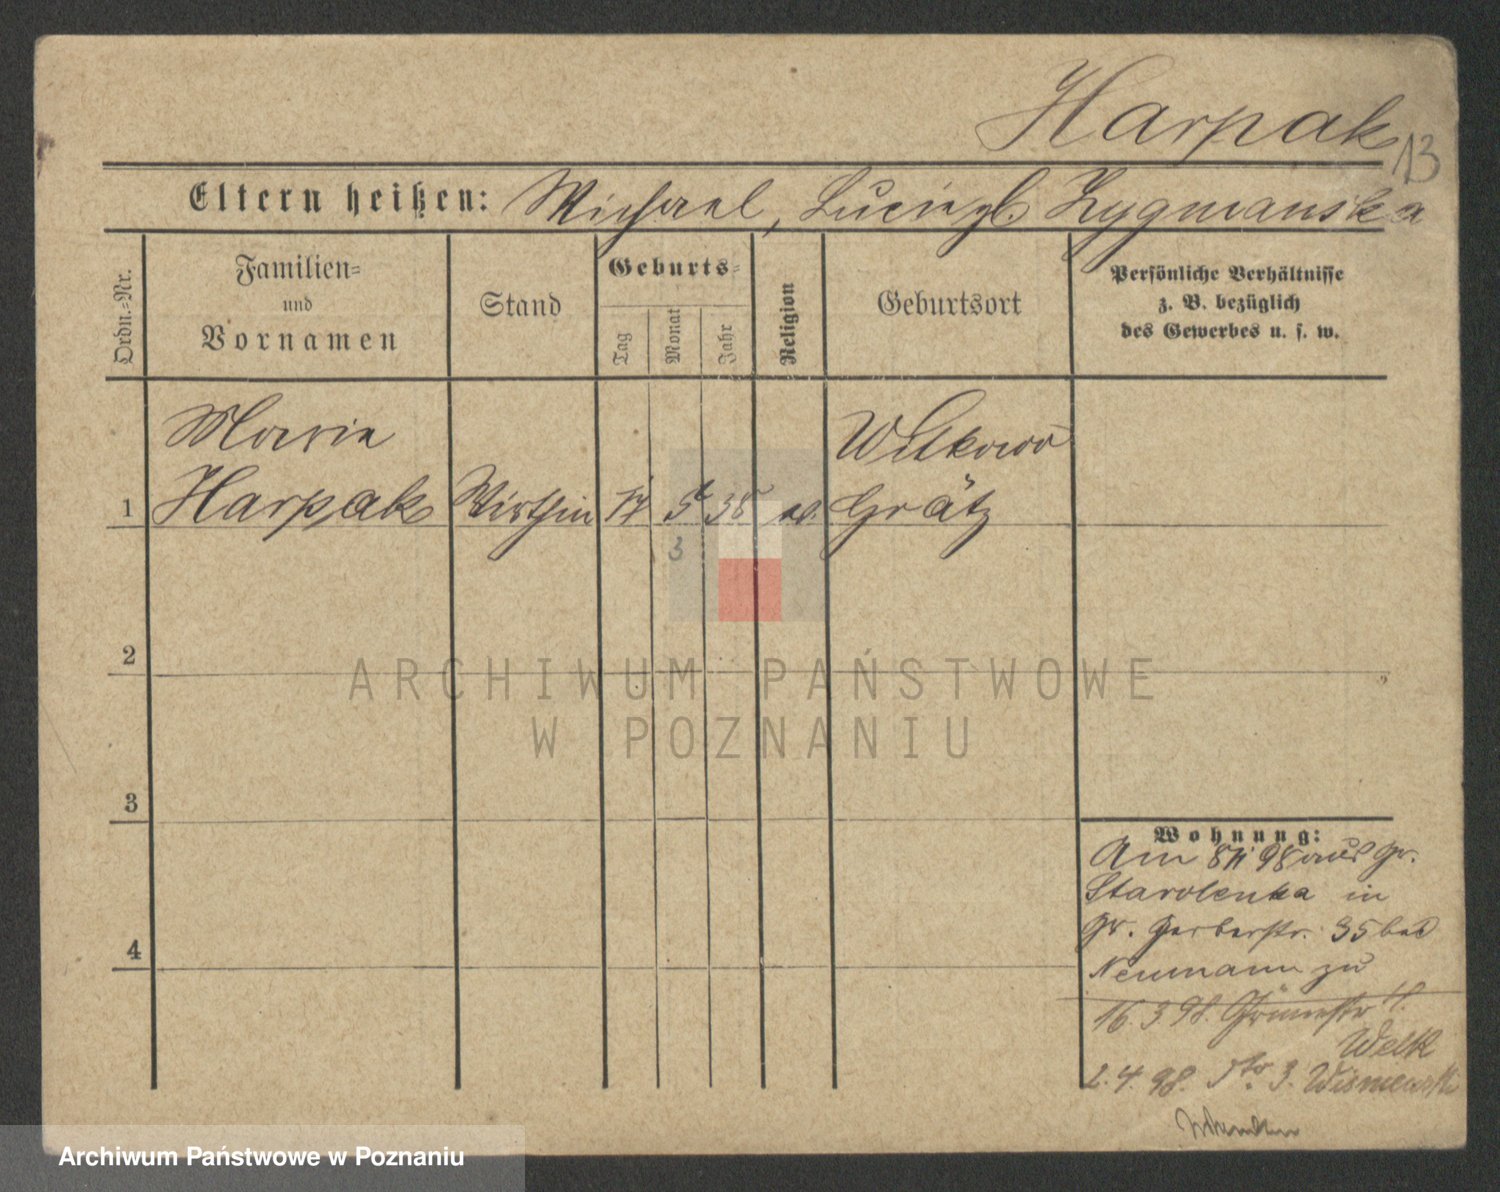 Harpak
13
Eltern heißen: Michael, Lucie gb. Zygmanska
Ordn.-Nr.
Familien-
und
Vornamen
Stand
Geburts-
Tag
Monat
Jahr
Religion
Geburtsort
Persönliche Verhältnisse
z. B. bezüglich
des Gewerbes u. s. w.
Marie
Harpak
Wirthin
17
5
38
Witkowo
Grätz
1
3
2
ARCHIWUM PAŃSTWOWE
W POZNANIU
3
Wohnung:
Am 8/1 98 aus Gr.
Starolenka in
Gr. Gerberstr. 35 bei
Neumann zu
4
16. 3 98. Grünestr 4.
Welk
2. 4. 98. 3.
Archiwum Państwowe w Poznaniu